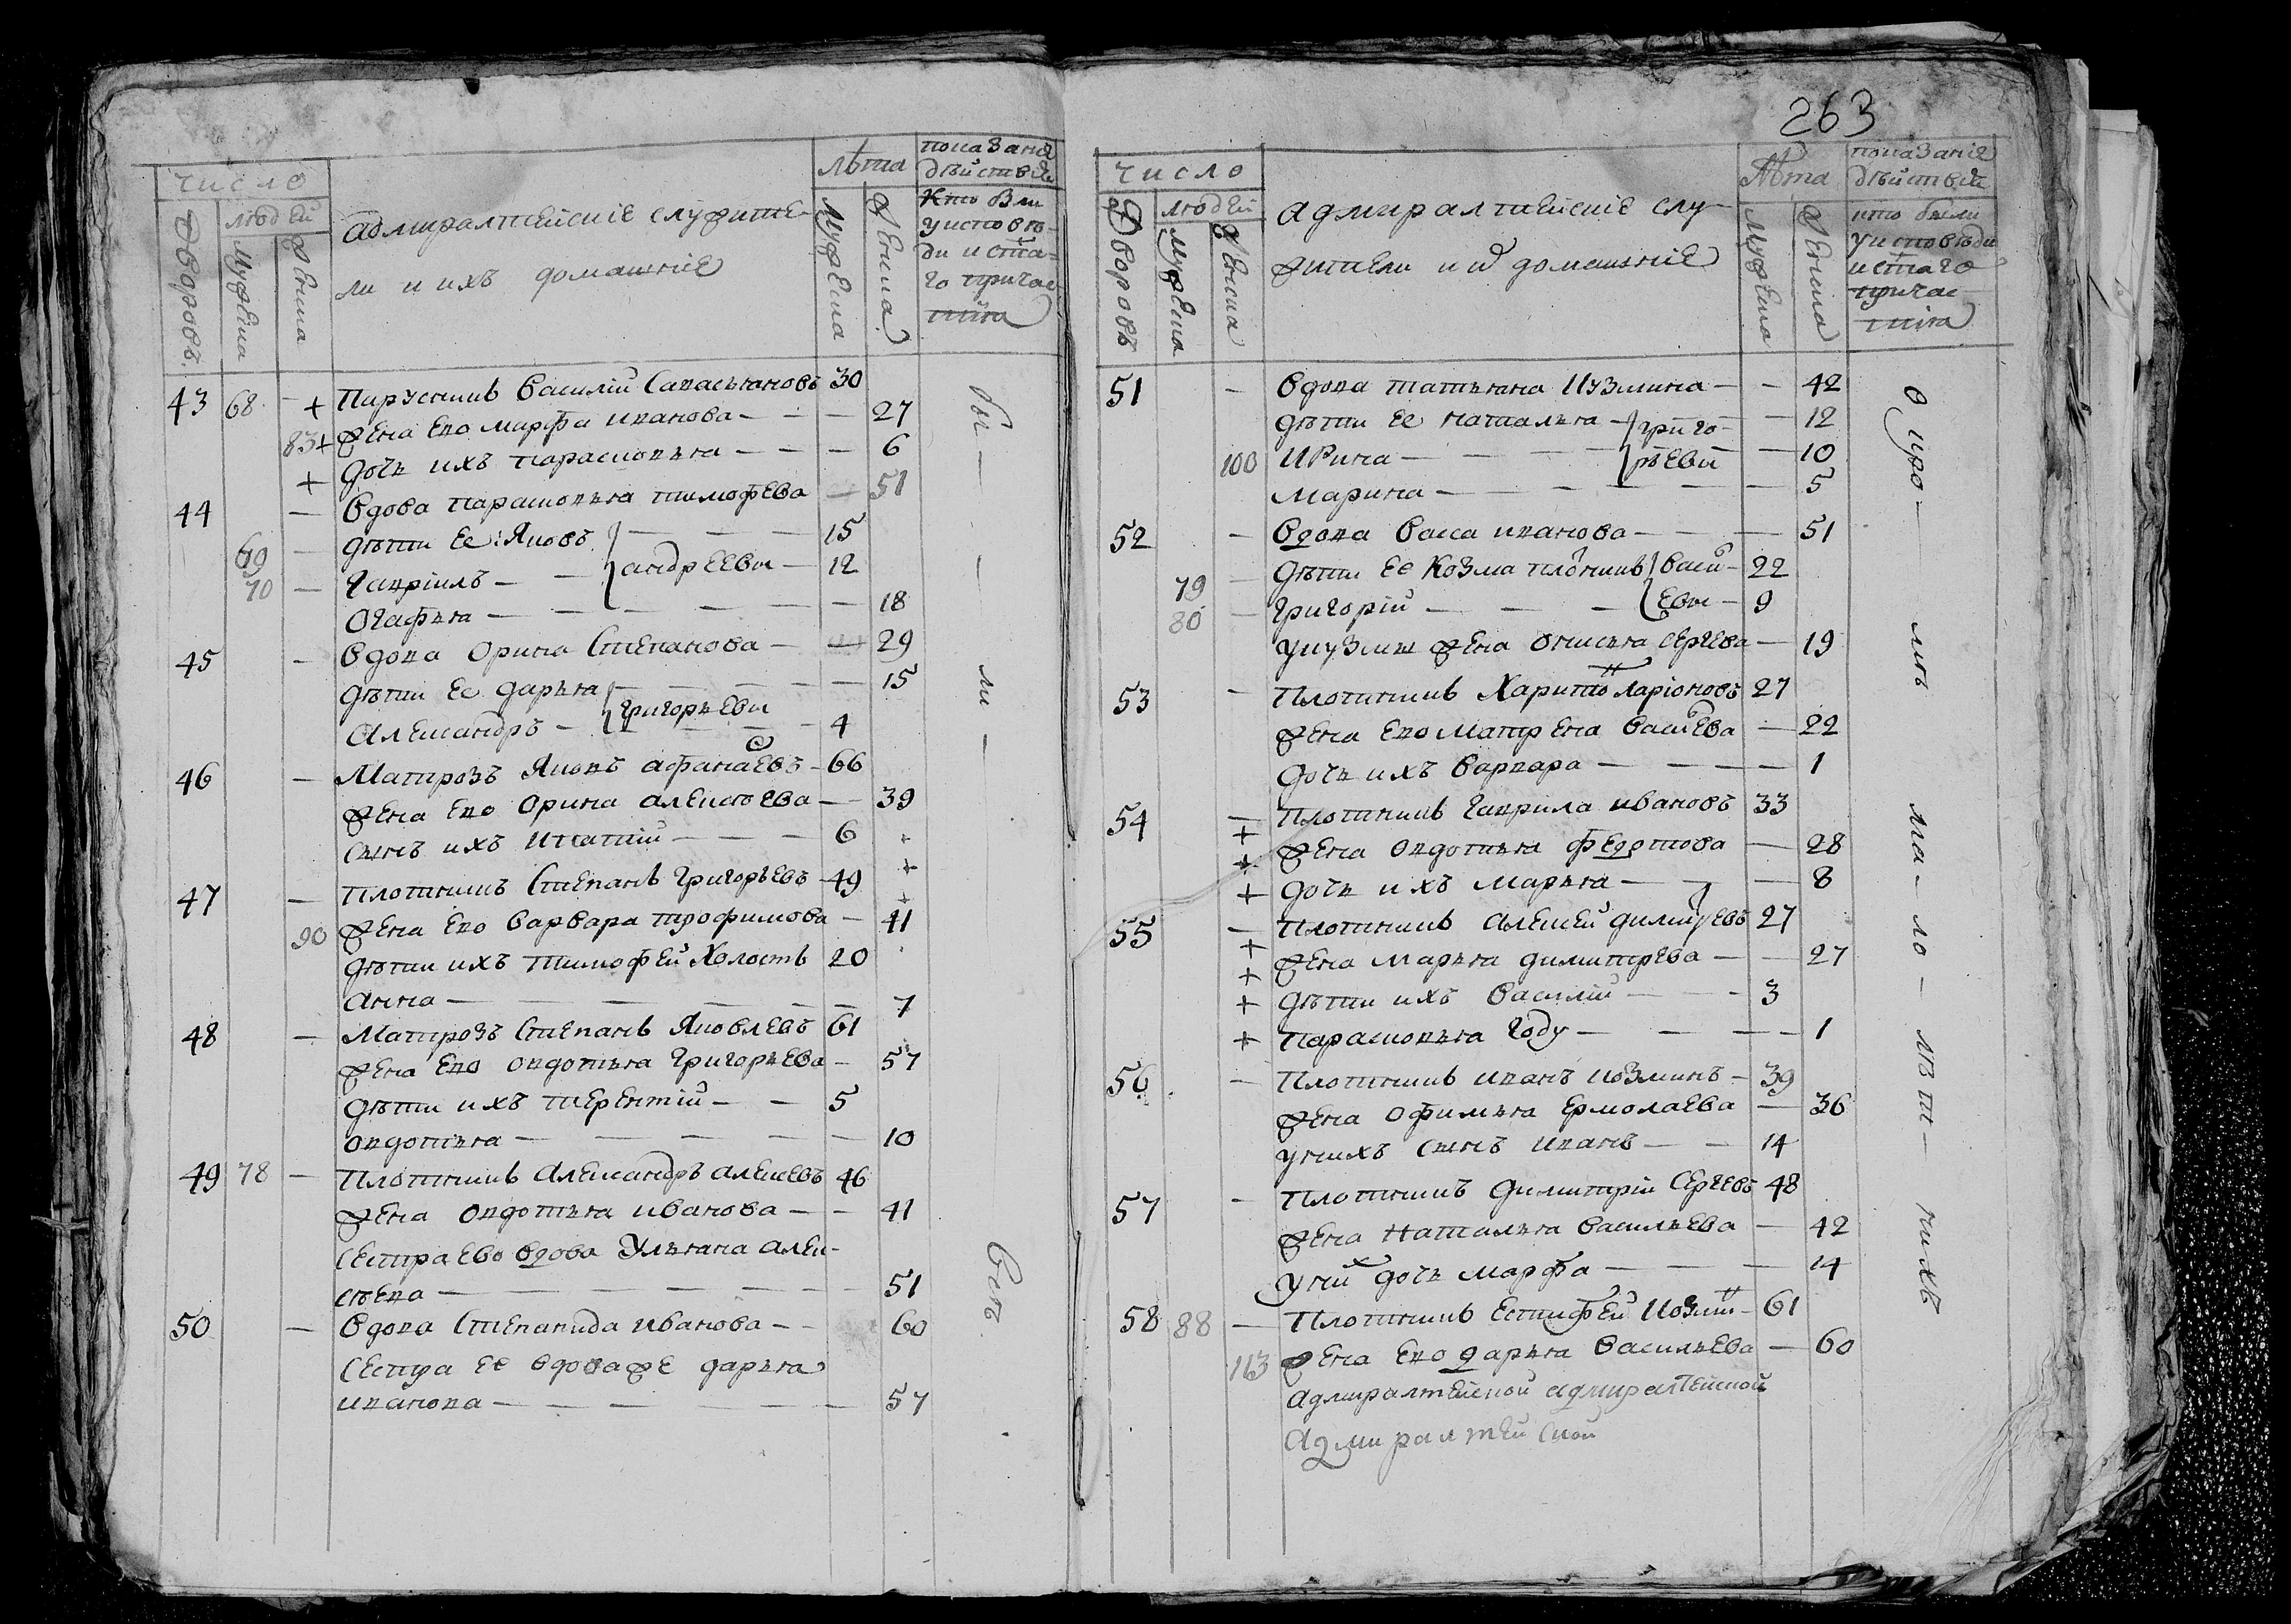 число
людей
Дворовъ.
Мужеска
Женска
адмиралтейскіе служите-
ли и ихъ домашніе
лѣта
Мужеска
Женска
показаніе
дѣйствія
Кто были
у исповѣ-
ди и свята-
го причас
тія
43 68 — + Парусникъ Василий 30
83 + жена Ево марфа иванова — — — 27
+ дочь ихъ парасковья — — — 6
44 — Вдова парасковья тимофева — 51
69 — дѣти Ее: Яковъ — — — 15
70 — Гавріилъ — — андреевы — 12
Огафья — — — — — 18
45 — Вдова орина Степанова — — 29
дѣти Ее дарья — — — — 15
Александръ — Григорьевы — — — 4
46 — Матрозъ Яковъ афанасЕвъ — 66
жена Ево орина алексѣева — — 39
сынъ ихъ игнатий — — — 6
47 — плотникъ Степанъ Григорьевъ — 49
90 жена Ево варвара трофимова — 41
дѣти ихъ тимофей холостъ 20
анна — — — — — — 7
48 — Матрозъ Степанъ Яковлевъ 61
жена Ево овдотья Григорьева — 57
дѣти ихъ терентій — — 5
овдотья — — — — — 10
49 78 — Плотникъ Александръ алексевъ 46
жена овдотья иванова — — 41
сестра ево вдова Ульяна алек-
сѣева — — — — — — 51
50 — Вдова Степанида иванова — — 60
Сестра ее вдова же дарья
иванова — — — — — — 57
бы — — — ли — всѣ.
263
число
людей
Дворовъ
Мужеска
Женска
адмиралтейскіе слу-
жители и их домашніе
Лѣта
Мужеска
Женска
показаніе
дѣйствія
кто были
у исповѣди
и стаго
причас
тия
51 — Вдова татьяна Кузмина — — 42
дѣти Ее наталья — григо- — 12
100 Ирина — — — — рьевы — 10
Марина — — — — — — 5
52 — Вдова васса иванова — — — 51
79 — дѣти Ее Козма плотникъ васи — 22
80 — григорій — — — Евы — 9
у кузмы жена Анисья сергева — 19
53 — плотникъ Харитонъ Ларіоновъ 27
жена Ево Матрена василЕва — 22
дочь ихъ варвара — — — — 1
54 — + плотникъ гаврила ивановъ 33
+ жена овдотья федотова — 28
+ дочь ихъ марья — — — 8
55 — + плотникъ алексей димитревъ 27
+ жена марья димитрева — — 27
+ дѣти ихъ василий — — — 3
+ парасковья году — — — — 1
56 — плотникъ иванъ козминъ — 39
жена офимья ермолаева — 36
у нихъ сынъ иванъ — — 14
57 — плотникъ димитрій сергевъ 48
жена наталья васильева — 42
у них дочь марфа — — — 14
58 88 — плотникъ Естифей Козмин — 61
113 жена Ево дарья васильева — 60
адмиралтейской адмиралтейской
адмиралтейской
О иро — лѣ мла — ло — лѣт — нихъ